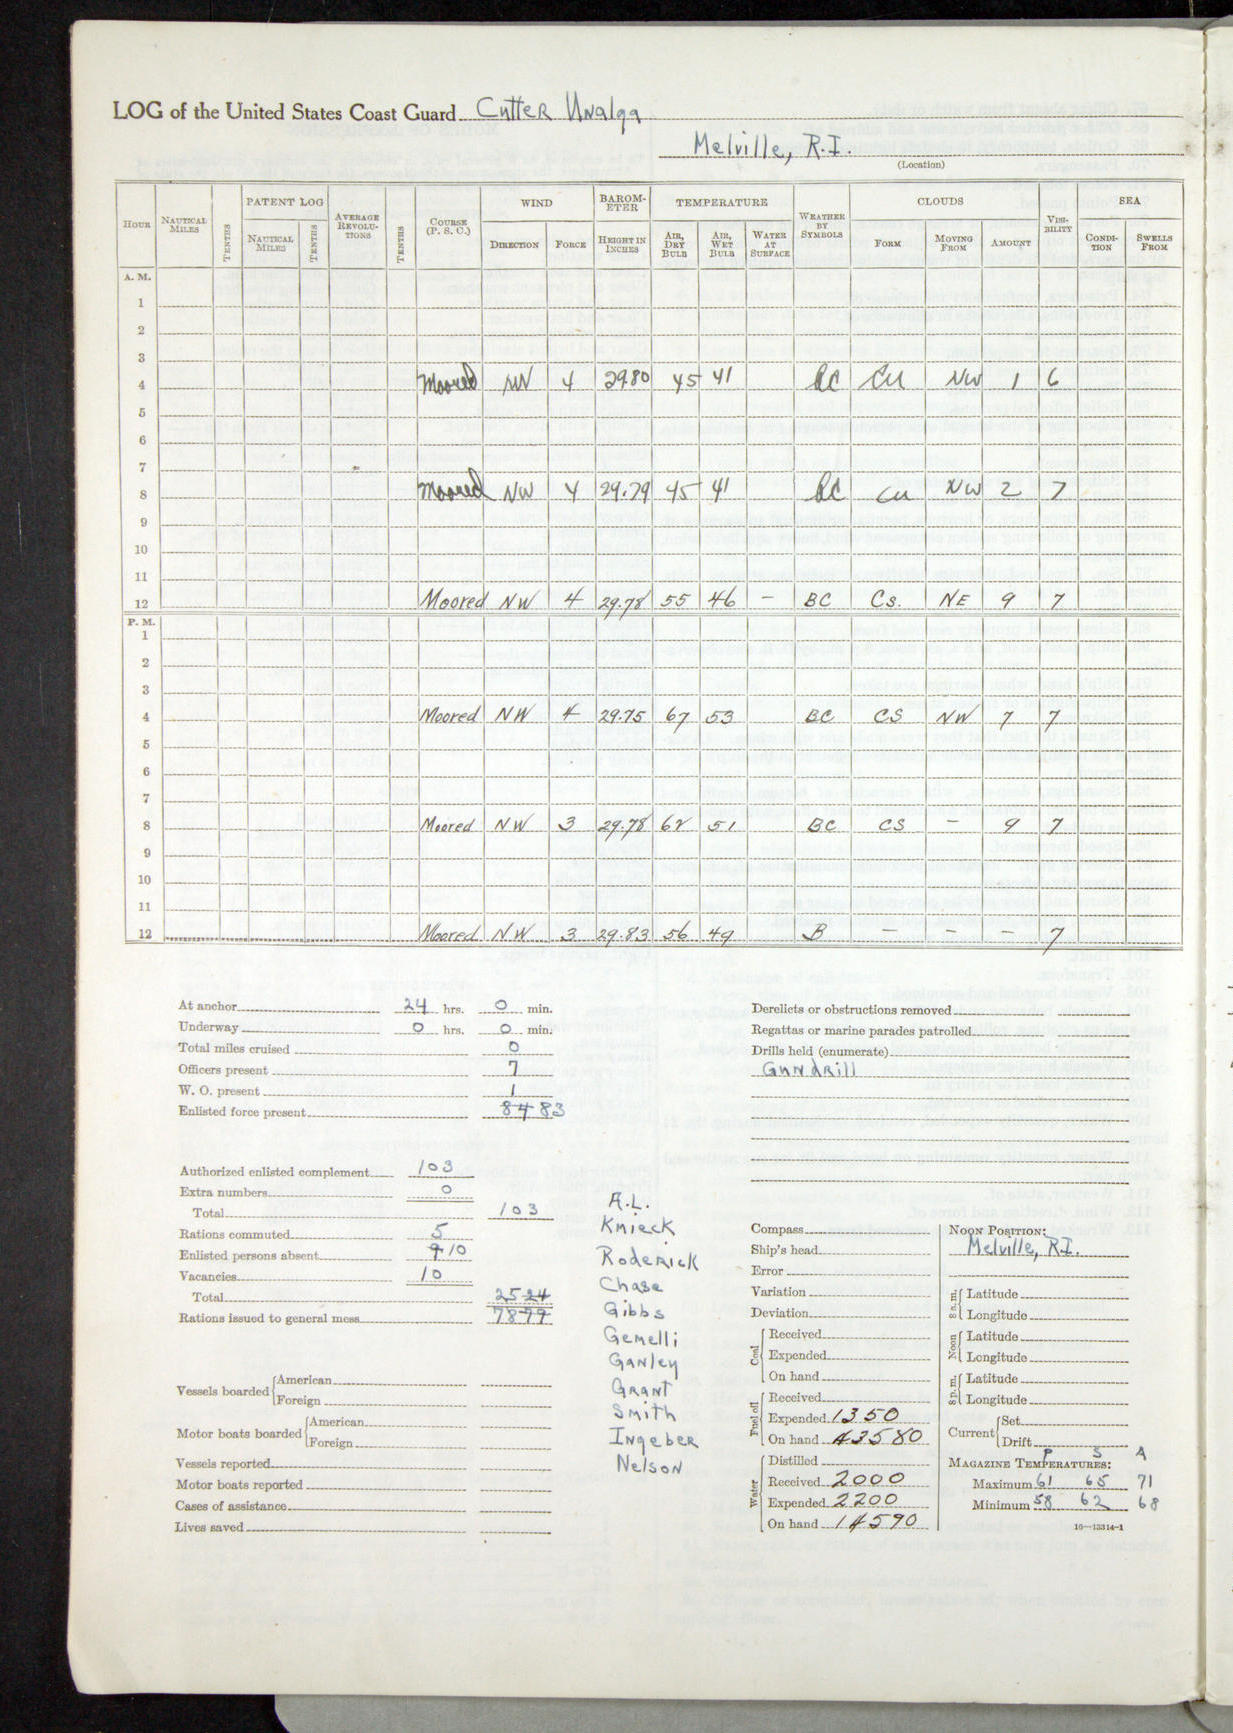 LOG of the United States Coast Guard Cutter Unalga
Melville, R.I.
(Location)
HOUR NAUTICAL MILES TENTHS PATENT LOG NAUTICAL MILES TENTHS AVERAGE REVOLUTIONS TENTHS COURSE (P. S. C.) WIND DIRECTION FORCE BAROMETER HEIGHT IN INCHES TEMPERATURE AIR, DRY BULB AIR, WET BULB WATER AT SURFACE WEATHER BY SYMBOLS CLOUDS FORM MOVING FROM AMOUNT VISIBILITY SEA CONDITION SWELLS FROM
A. M.
1
2
3
4 Moored NW 4 29.80 45 41 BC CU NW 1 6
5
6
7
8 Moored NW 4 29.79 45 41 BC CU NW 2 7
9
10
11
12 Moored NW 4 29.78 55 46 – BC CS. NE 9 7
P. M.
1
2
3
4 Moored NW 4 29.75 67 53 BC CS NW 7 7
5
6
7
8 Moored NW 3 29.78 62 51 BC CS – 9 7
9
10
11
12 Moored NW 3 29.83 56 49 B – – – 7
At anchor 24 hrs. 0 min.
Underway 0 hrs. 0 min.
Total miles cruised 0
Officers present 7
W. O. present 1
Enlisted force present 84 83
Authorized enlisted complement 103
Extra numbers 0
Total 103
Rations commuted 5
Enlisted persons absent 9 10
Vacancies 10
Total 25 24
Rations issued to general mess 78 79
Vessels boarded American
Foreign
Motor boats boarded American
Foreign
Vessels reported
Motor boats reported
Cases of assistance
Lives saved
A.L.
Kmieck
Roderick
Chase
Gibbs
Gemelli
Ganley
Grant
Smith
Ingeber
Nelson
Derelicts or obstructions removed
Regattas or marine parades patrolled
Drills held (enumerate)
Gundrill
Compass
Ship's head
Error
Variation
Deviation
Coal Received
Expended
On hand
Fuel oil Received
Expended 1350
On hand 43580
Water Distilled
Received 2000
Expended 2200
On hand 14590
NOON POSITION:
Melville, R.I.
8 a.m. Latitude
Longitude
Noon Latitude
Longitude
8 p.m. Latitude
Longitude
Current Set
Drift
P S A
MAGAZINE TEMPERATURES:
Maximum 61 65 71
Minimum 58 62 68
16—13314-1